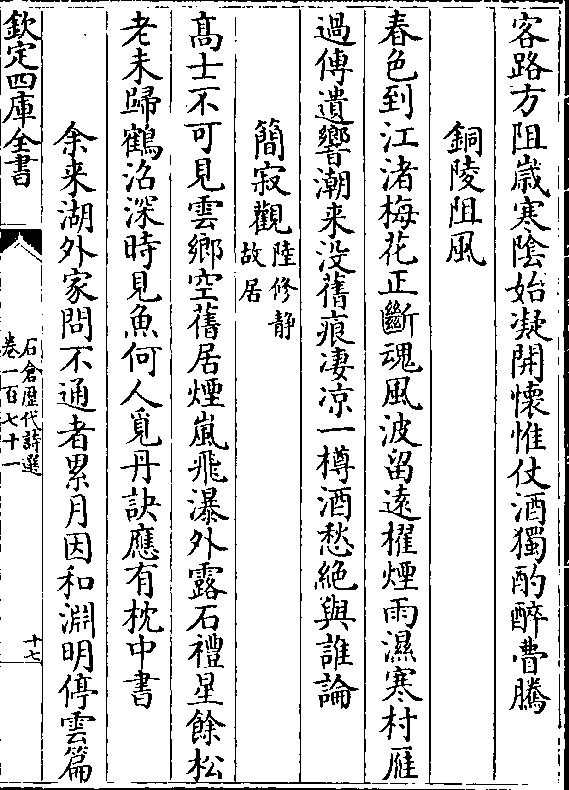 客路方阻歲寒陰始凝開懷惟仗酒獨酌醉瞢騰
銅陵阻風
春色到江渚梅花正斷魂風波留遠櫂煙雨濕寒村雁
過傳遺響潮来没舊痕凄凉一樽酒愁絶與誰論
簡寂觀陸修静故居
髙士不可見雲鄉空舊居煙嵐飛瀑外露石禮星餘松
老未歸鶴沼深時見魚何人覓丹訣應有枕中書
余来湖外家問不通者累月因和淵明停雲篇
欽定四庫全書
石倉歴代詩選
卷一百七十一
十七